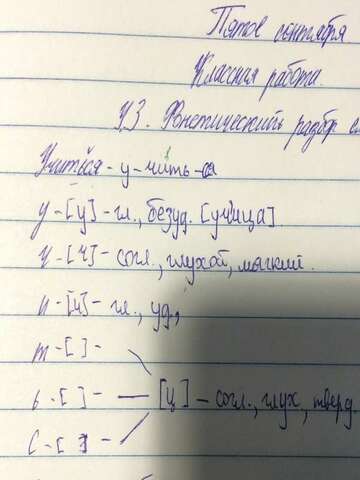 Пятое сентября
Классная работа.
У3. Фонетический разбор сл
Учиться - у-чить-ся
у - [у] - гл., безуд. [уч'ица]
ч - [ч] - согл., глухой, мягкий.
и - [и] - гл., уд.,
т - [ ] -
ь - [ ] - [ц] - согл., глух, тверд
с - [ ] -